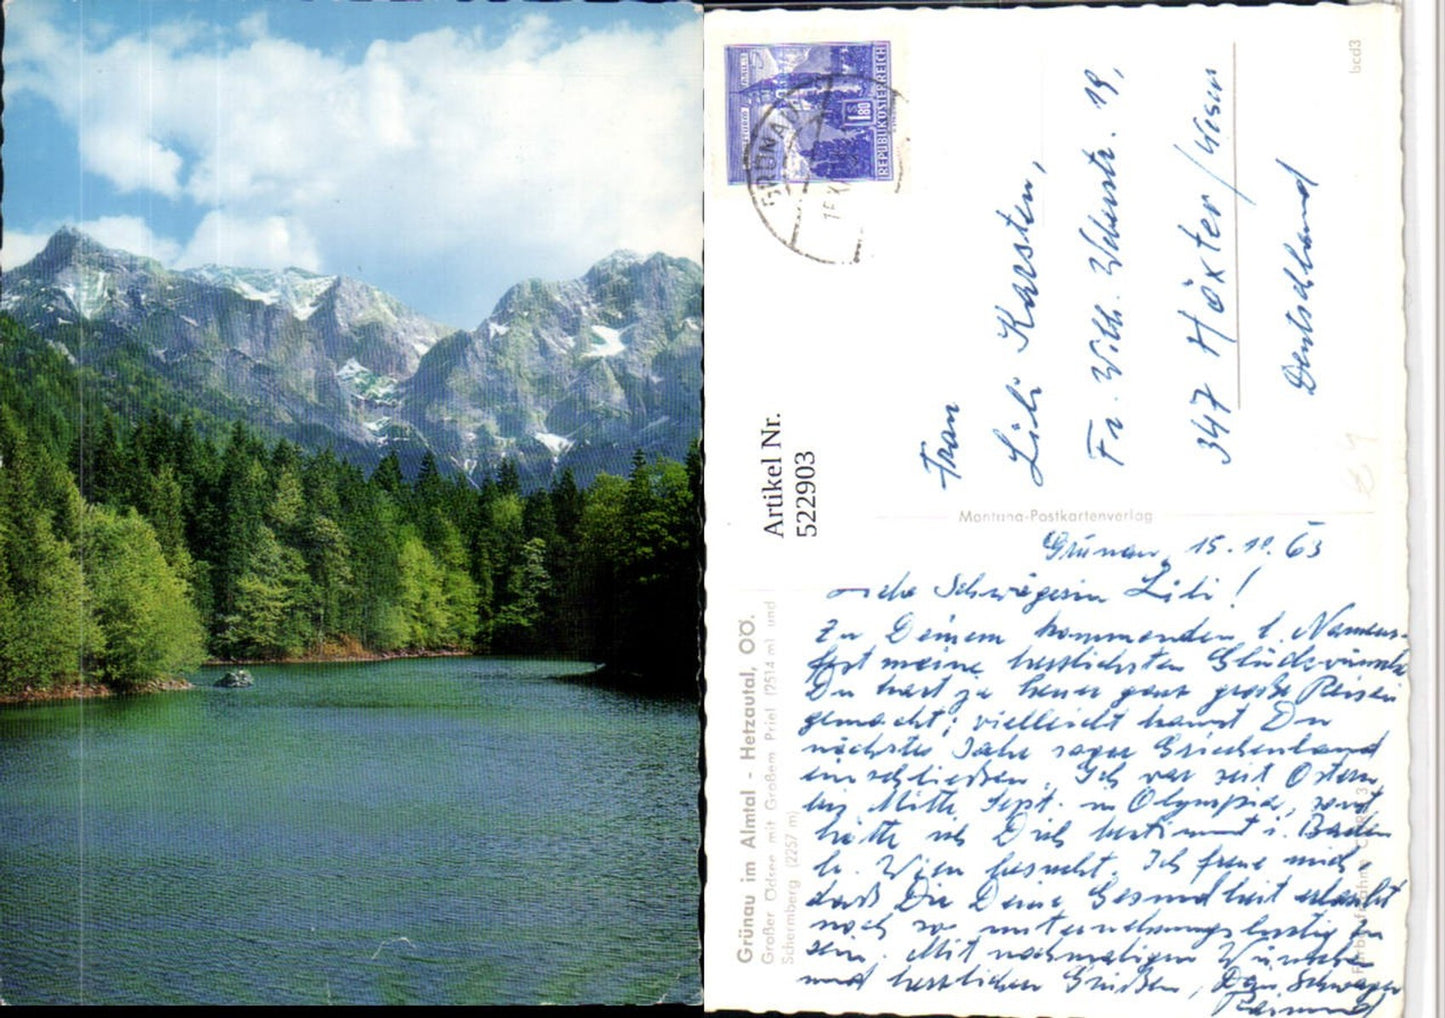 REPUBLIK ÖSTERREICH
S 1.80
GRÜNAU
bcd3
Frau
Lili Karsten,
Fr. Wilh. Weberstr. 19,
347 Höxter/Weser
Deutschland
Artikel Nr.
522903
Montana-Postkartenverlag
Grünau im Almtal - Hetzautal, OÖ.
Großer Ödsee mit Großem Priel (2514 m) und
Schermberg (2257 m)
Grünau, 15.10.63
Schwägerin Lili!
Zu Deinem kommenden l. Namens-
fest meine herzlichsten Glückwünsche
Du hast ja heuer ganz große Reisen
gemacht; vielleicht kannst Du
nächstes Jahr sogar Griechenland
einschließen. Ich war seit Ostern
bis Mitte Sept. in Olympia, sonst
hätte ich Dich bestimmt i. Baden
b. Wien besucht. Ich freue mich
daß Dir Deine Gesundheit erlaubt
noch so unternehmungslustig zu
sein. Mit nochmaligen Wünschen
und herzlichen Grüßen, Dein Schwager
Raimund